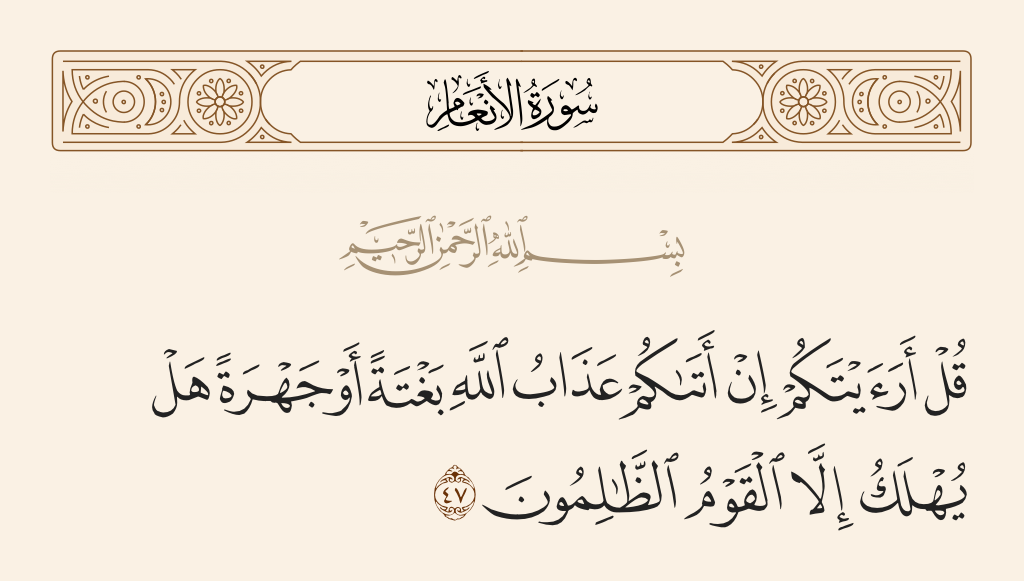 سُورَةُ الأَنْعَامِ
بِسْمِ ٱللَّهِ ٱلرَّحْمَٰنِ ٱلرَّحِيمِ
قُلْ أَرَءَيْتَكُمْ إِنْ أَتَىٰكُمْ عَذَابُ ٱللَّهِ بَغْتَةً أَوْ جَهْرَةً هَلْ
يُهْلَكُ إِلَّا ٱلْقَوْمُ ٱلظَّٰلِمُونَ ٤٧